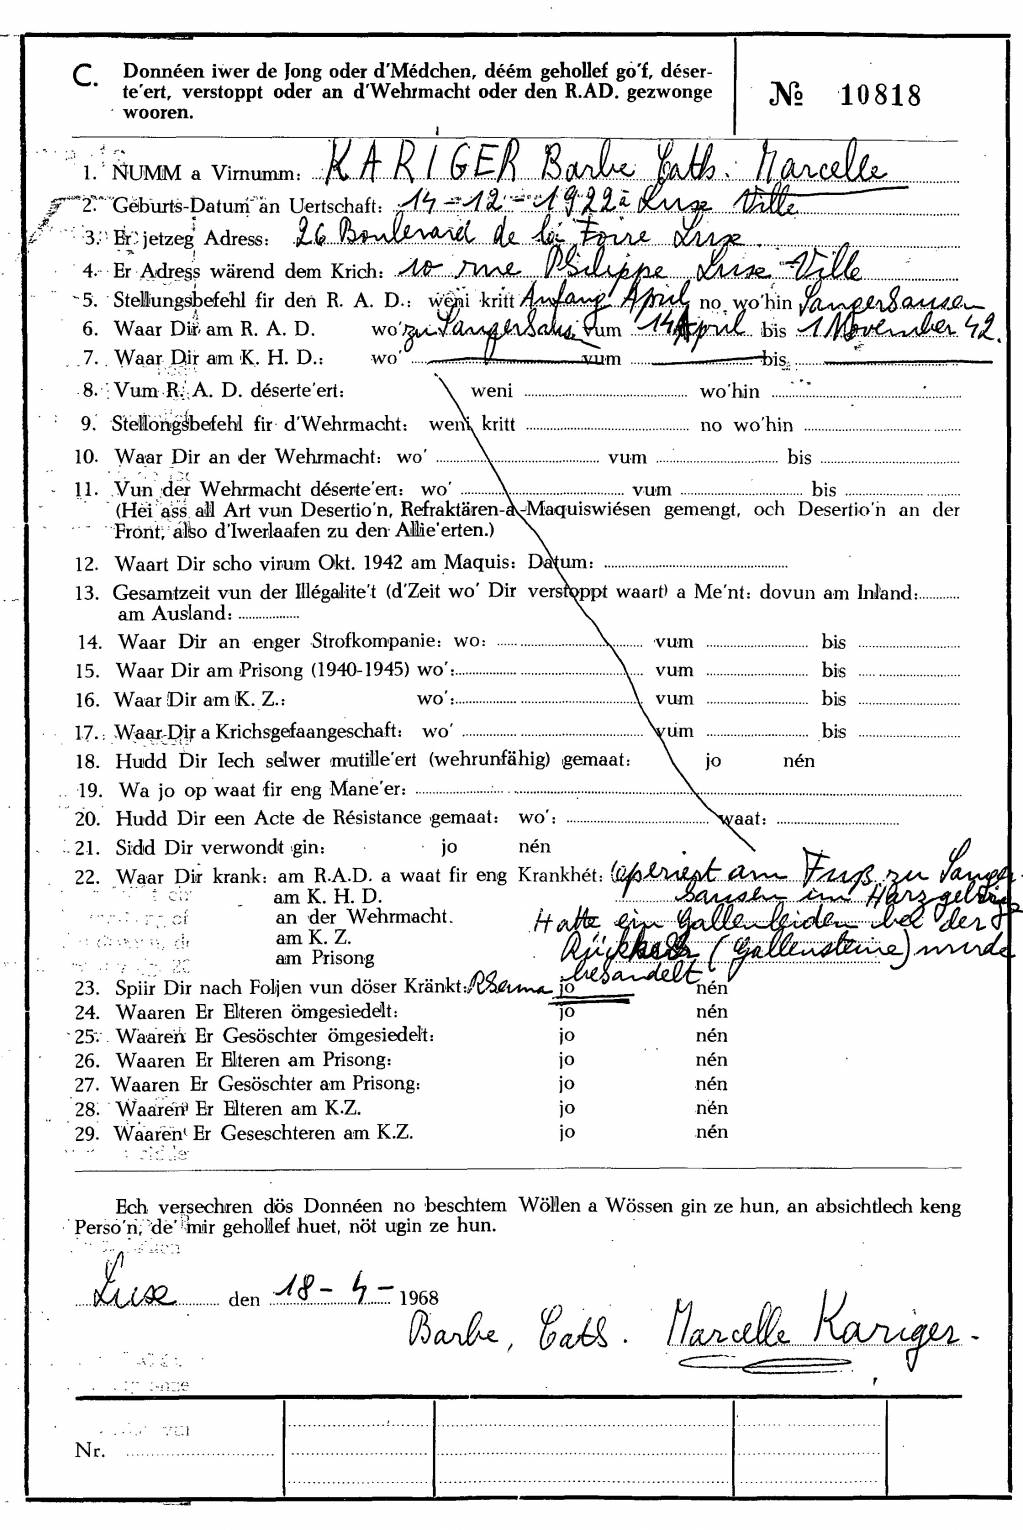 C. Donnéen iwer de Jong oder d'Médchen, déém gehollef go'f, déser-
te'ert, verstoppt oder an d'Wehrmacht oder den R.AD. gezwonge
wooren.
№ 10818
1. NUMM a Virnumm: KARIGER Barbe Cath. Marcelle
2. Geburts-Datum an Uertschaft: 14-12-1922 à Lux Ville
3. Er jetzeg Adress: 26 Boulevard de la Foire Lux.
4. Er Adress wärend dem Krich: 10 rue Philippe Lux Ville
5. Stellungsbefehl fir den R. A. D.: weni kritt Anfang April no wo'hin Sangerhausen
6. Waar Dir am R. A. D. wo' zu Sangerhausen vum 14 April bis 1 November 42.
7. Waar Dir am K. H. D.: wo' vum bis
8. Vum R. A. D. déserte'ert: weni wo'hin
9. Stellongsbefehl fir d'Wehrmacht: weni kritt no wo'hin
10. Waar Dir an der Wehrmacht: wo' vum bis
11. Vun der Wehrmacht déserte'ert: wo' vum bis
(Hei ass all Art vun Desertio'n, Refraktären-a-Maquiswiésen gemengt, och Desertio'n an der
Front, also d'Iwerlaafen zu den Allie'erten.)
12. Waart Dir scho virum Okt. 1942 am Maquis: Datum:
13. Gesamtzeit vun der Illégalite't (d'Zeit wo' Dir verstoppt waart) a Me'nt: dovun am Inland:
am Ausland:
14. Waar Dir an enger Strofkompanie: wo: vum bis
15. Waar Dir am Prisong (1940-1945) wo': vum bis
16. Waar Dir am K. Z.: wo': vum bis
17. Waar Dir a Krichsgefaangeschaft: wo' vum bis
18. Hudd Dir Iech selwer mutille'ert (wehrunfähig) gemaat: jo nén
19. Wa jo op waat fir eng Mane'er:
20. Hudd Dir een Acte de Résistance gemaat: wo': waat:
21. Sidd Dir verwondt gin: jo nén
22. Waar Dir krank: am R.A.D. a waat fir eng Krankhét: Operiert am Fuß zu Sanger
am K. H. D. hausen im Harzgebirge
an der Wehrmacht. Hatte ein Gallenleiden bei der
am K. Z. Rückkehr (Gallensteine) wurde
am Prisong behandelt
23. Spiir Dir nach Foljen vun döser Kränkt: Rheuma jo nén
24. Waaren Er Elteren ömgesiedelt: jo nén
25. Waaren Er Gesöschter ömgesiedelt: jo nén
26. Waaren Er Elteren am Prisong: jo nén
27. Waaren Er Gesöschter am Prisong: jo nén
28. Waaren Er Elteren am K.Z. jo nén
29. Waaren Er Geseschteren am K.Z. jo nén
Ech versechren dös Donnéen no beschtem Wöllen a Wössen gin ze hun, an absichtlech keng
Perso'n, de' mir gehollef huet, nöt ugin ze hun.
Lux den 18-4- 1968
Barbe, Cath. Marcelle Kariger.
Nr.